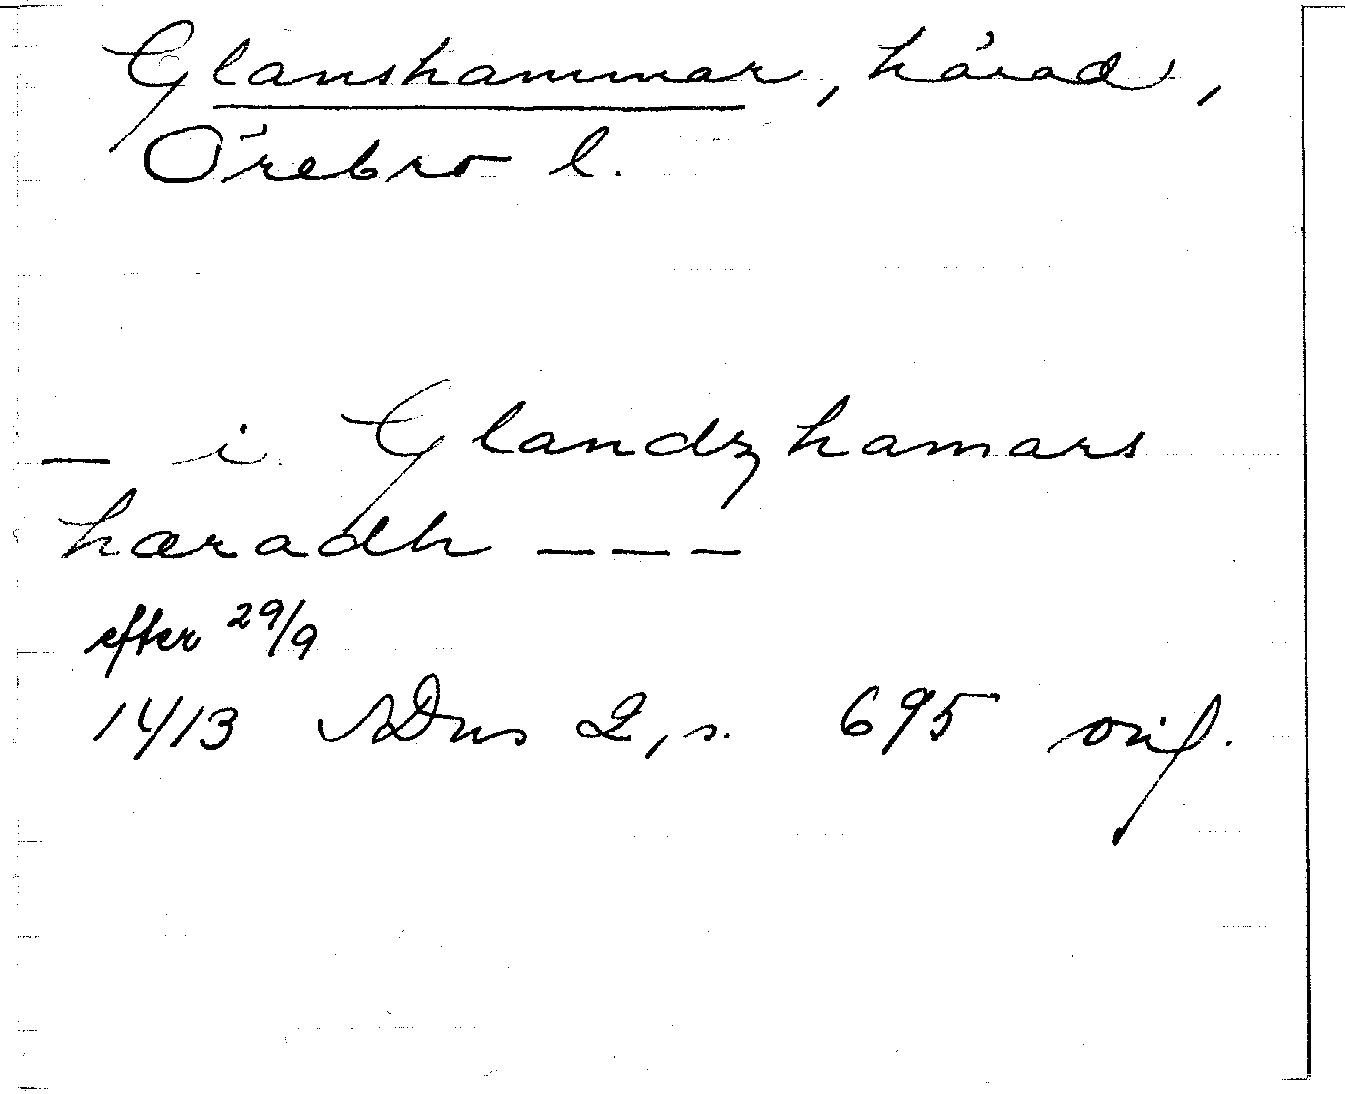 Glanshammar, härad,
Örebro l.
— i Glandzhamars
hæradh – – –
efter 29/9
1413 SDns 2, s. 695 orig.